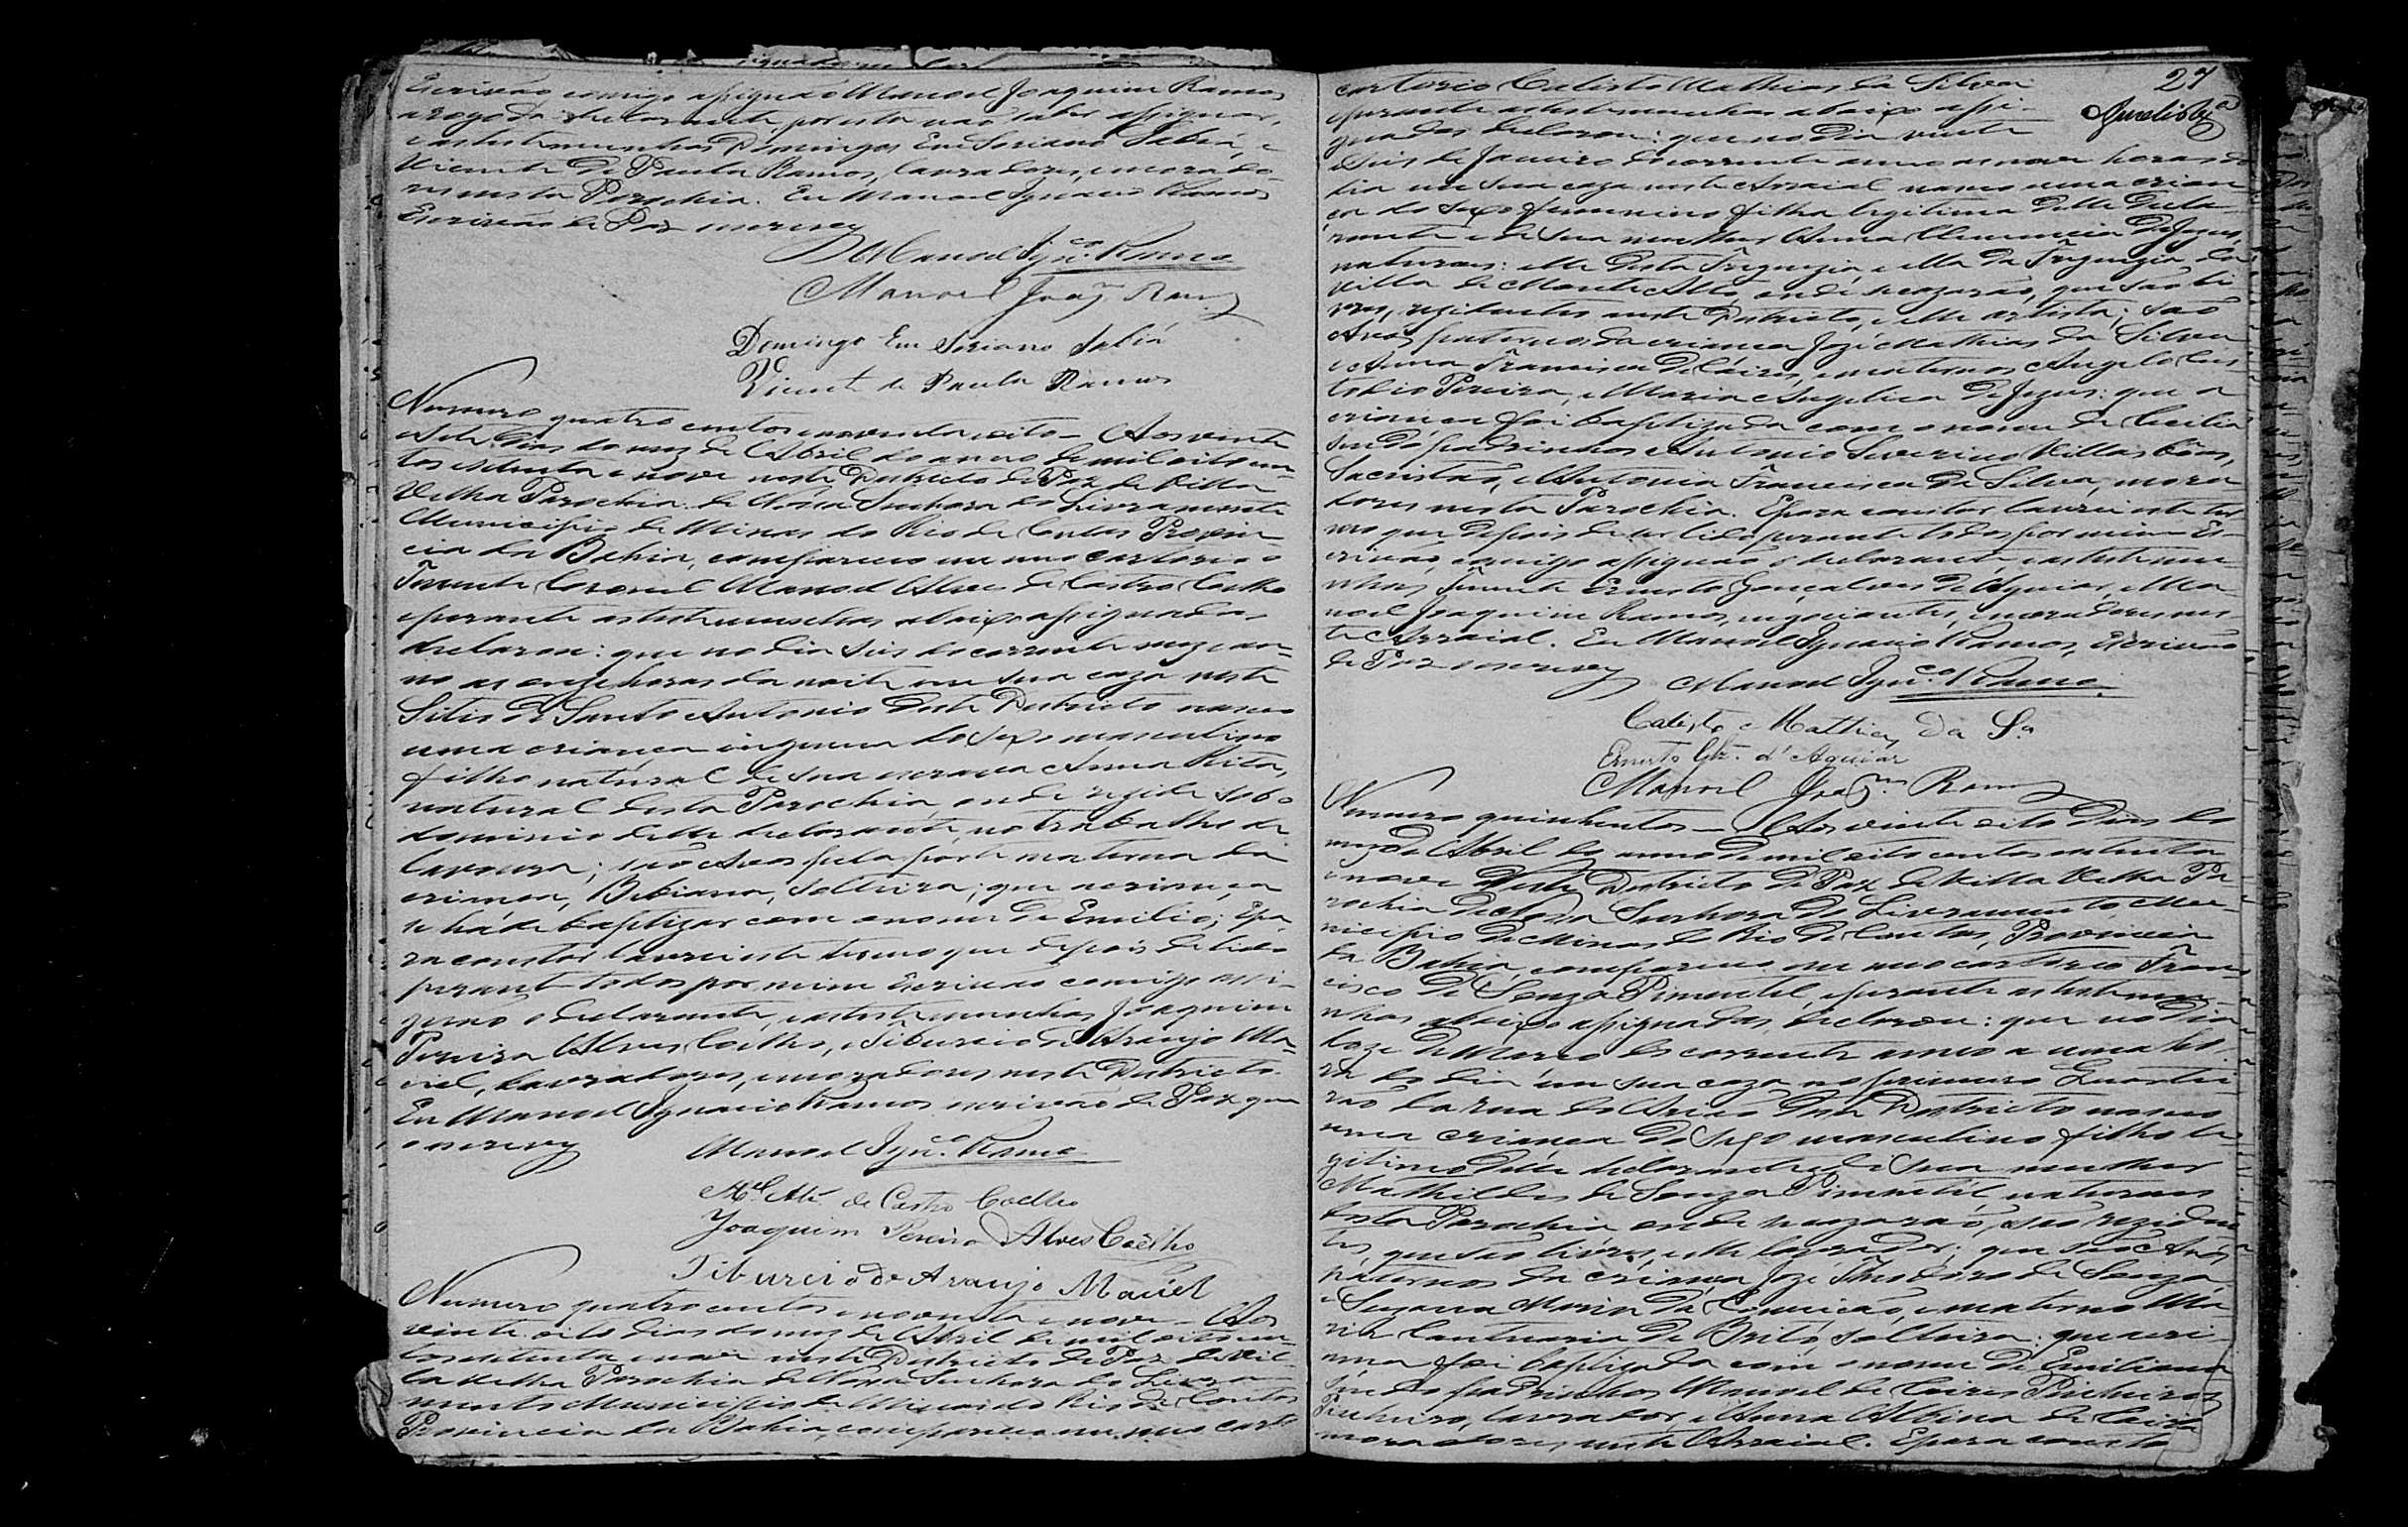 Escrivão comigo assignão Manoel Joaquim Ramos
arogo da declarante, por esta não saber assignar,
e as testemunhas Domingos Em Soriano Sabiá, e
Vicente de Paula Ramos, lavradores, e morado-
res nesta Parochia. Eu Manoel Ignacio Ramos
Escrivão de Paz escrevy
Manoel Ign.co Ramos
Manoel Joaq.m Ramos
Domingo Em Soriano Sabiá
Vicente de Paula Ramos
Numero quatro centos e noventa e oito – Aos vinte
e sete dias do mez de Abril do anno de mil oito cen-
tos e setenta e nove neste Districto de Paz de Villa
Velha Parochia de Nossa Senhora do Livramento
Municipio de Minas do Rio de Contas Provin-
cia da Bahia, compareceu em meo cartorio o
Tenente Coronel Manoel Alves de Castro Coelho
e perante as testemunhas abaixo assignadas
declarou: que no dia seis do corrente mez e an-
no as onze horas da noite em sua caza neste
Sitio de Santo Antonio deste Districto nasceo
uma criança ingenua do sexo masculino
filho natural de sua escrava Anna Rita,
natural desta Parochia, onde rezide sob o
dominio delle declarante, no trabalho da
lavoura; são Avos pela parte materna da
criança, Bibiana, solteira; que a criança
se há de baptizar com o nome de Emilio; E pa-
ra constar lavrei este termo que depois de lido
perante todos por mim Escrivão comigo assi-
gnão o declarante, e as testemunhas Joaquim
Pereira Alves Coelho, e Tiburcio de Araujo Ma-
ciel, lavradores, e moradores neste Districto.
Eu Manoel Ignacio Ramos escrivão de Paz que
o escrevy
Manoel Ign.co Ramos
M.el Alz. de Castro Coelho
Joaquim Pereira Alves Coelho
Tiburcio de Araujo Maciel
Numero quatro centos e noventa e nove – Aos
vinte e oito dias do mez de Abril de mil oito cen-
tos e setenta e nove neste Districto de Paz de Vil-
la Velha Parochia de Nossa Senhora do Livra-
mento Municipio de Minas do Rio de Contas
Provincia da Bahia, compareceu em meo carto
27
cartorio Calisto Mathias da Silva
e perante as testemunhas abaixo assi-
gnadas declarou: que no dia vinte
e seis de Janeiro do corrente anno as nove horas do
dia em sua caza neste Arraial nasceo uma crian
ça do sexo feminino filha legitima delle decla-
rante e de sua mulher Anna Clemencia de Jezus,
naturaes: elle desta Freguezia, e ella da Freguezia da
Villa de Monte Alto, onde se cazarão, que são li-
vres, rezidentes neste Districto, e elle artista; são
Avós paternos da criança Jozé Mathias da Silva
e Anna Francisca de Cáires, e maternos Angelo Cus
todio Pereira, e Maria Angelica de Jezus: que a
criança foi baptizada com o nome de Cecilia
sendo padrinhos Antonio Severino Villas bôas,
Sacristão, e Antonia Francisca da Silva, mora-
dores nesta Parochia. E para constar lavrei este ter
mo que depois de ser lido perante todos por mim Es-
crivão, comigo assignão o declarante, e as testemu-
nhas Tenente Ernesto Gonçalves de Aguiar, e Ma-
noel Joaquim Ramos, negociantes, e moradores nes-
te Arraial. Eu Manoel Ignacio Ramos, Escrivão
de Paz o escrevy
Manoel Ign.co Ramos
Calisto Mathias da S.a
Ernesto Glz. d'Aguiar
Manoel Joaq.m Ramos
Numero quinhentos – Aos vinte e oito dias do
mez de Abril do anno de mil oito centos e setenta
e nove neste Districto de Paz de Villa Velha Pa-
rochia de Nossa Senhora do Livramento, Mu-
nicipio de Minas do Rio de Contas, Provincia
da Bahia, compareceo em meo cartorio Fran-
cisco de Souza Pimentel, e perante as testemu-
nhas abaixo assignadas, declarou: que no dia
doze de Março do corrente anno a uma ho-
ra do dia em sua caza no primeiro Quartei-
rão da rua do deste Districto nasceo
uma criança do sexo masculino filho le-
gitimo delle declarante e de sua mulher
Mathildes de Souza Pimentel, naturaes
desta Parochia onde se cazarão, e são reziden-
tes, que são livres, e elle lavrador; que são Avós
paternos da criança Jozé Theodoro de Souza
e Suzana Maria da Conceição, e materna Ma-
ria Cantuaria de Brito, solteira: que a cri-
ança foi baptizada com o nome de Emiliano
sendo padrinhos Manoel de Caires Pinheiro
Pinheiro, lavrador, e Anna Albina de Caires
moradores neste Arraial. E para consta